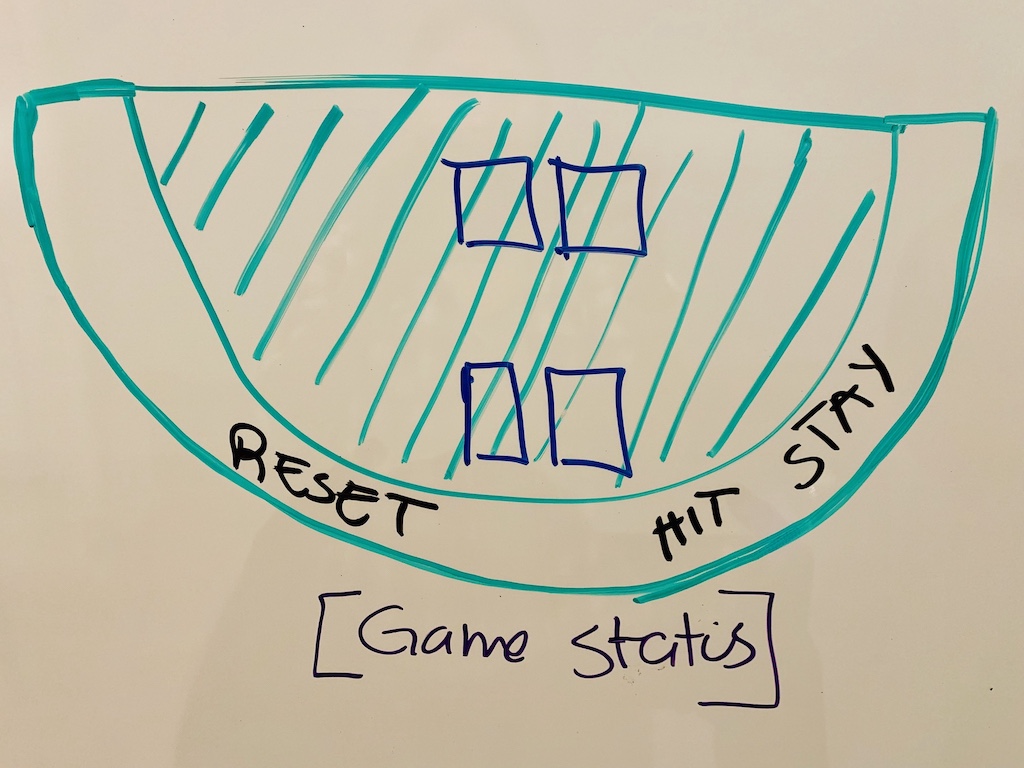 RESET
HIT
STAY
[Game status]